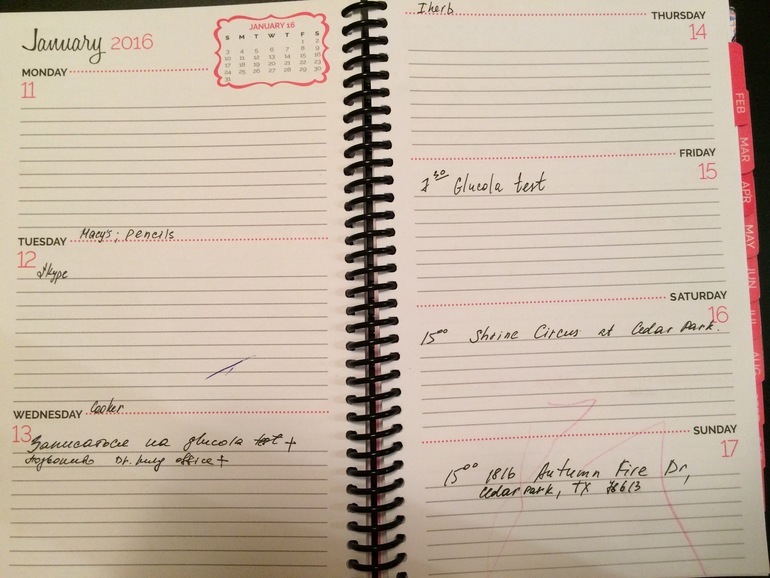 January 2016
JANUARY 16
S M T W T F S
1 2
3 4 5 6 7 8 9
10 11 12 13 14 15 16
17 18 19 20 21 22 23
24 25 26 27 28 29 30
31
MONDAY
11
Macy's; pencils
TUESDAY
12
Skype
Cooker
WEDNESDAY
13
Записаться на glucola test +
Позвонить Dr. office +
Iherb
THURSDAY
14
FRIDAY
15
Glucola test
SATURDAY
16
15⁰⁰ Shrine Circus at Cedar Park.
SUNDAY
17
15⁰⁰ 1816 Autumn Fire Dr,
Cedar Park, TX 78613
FEB
MAR
APR
MAY
JUN
JUL
AUG